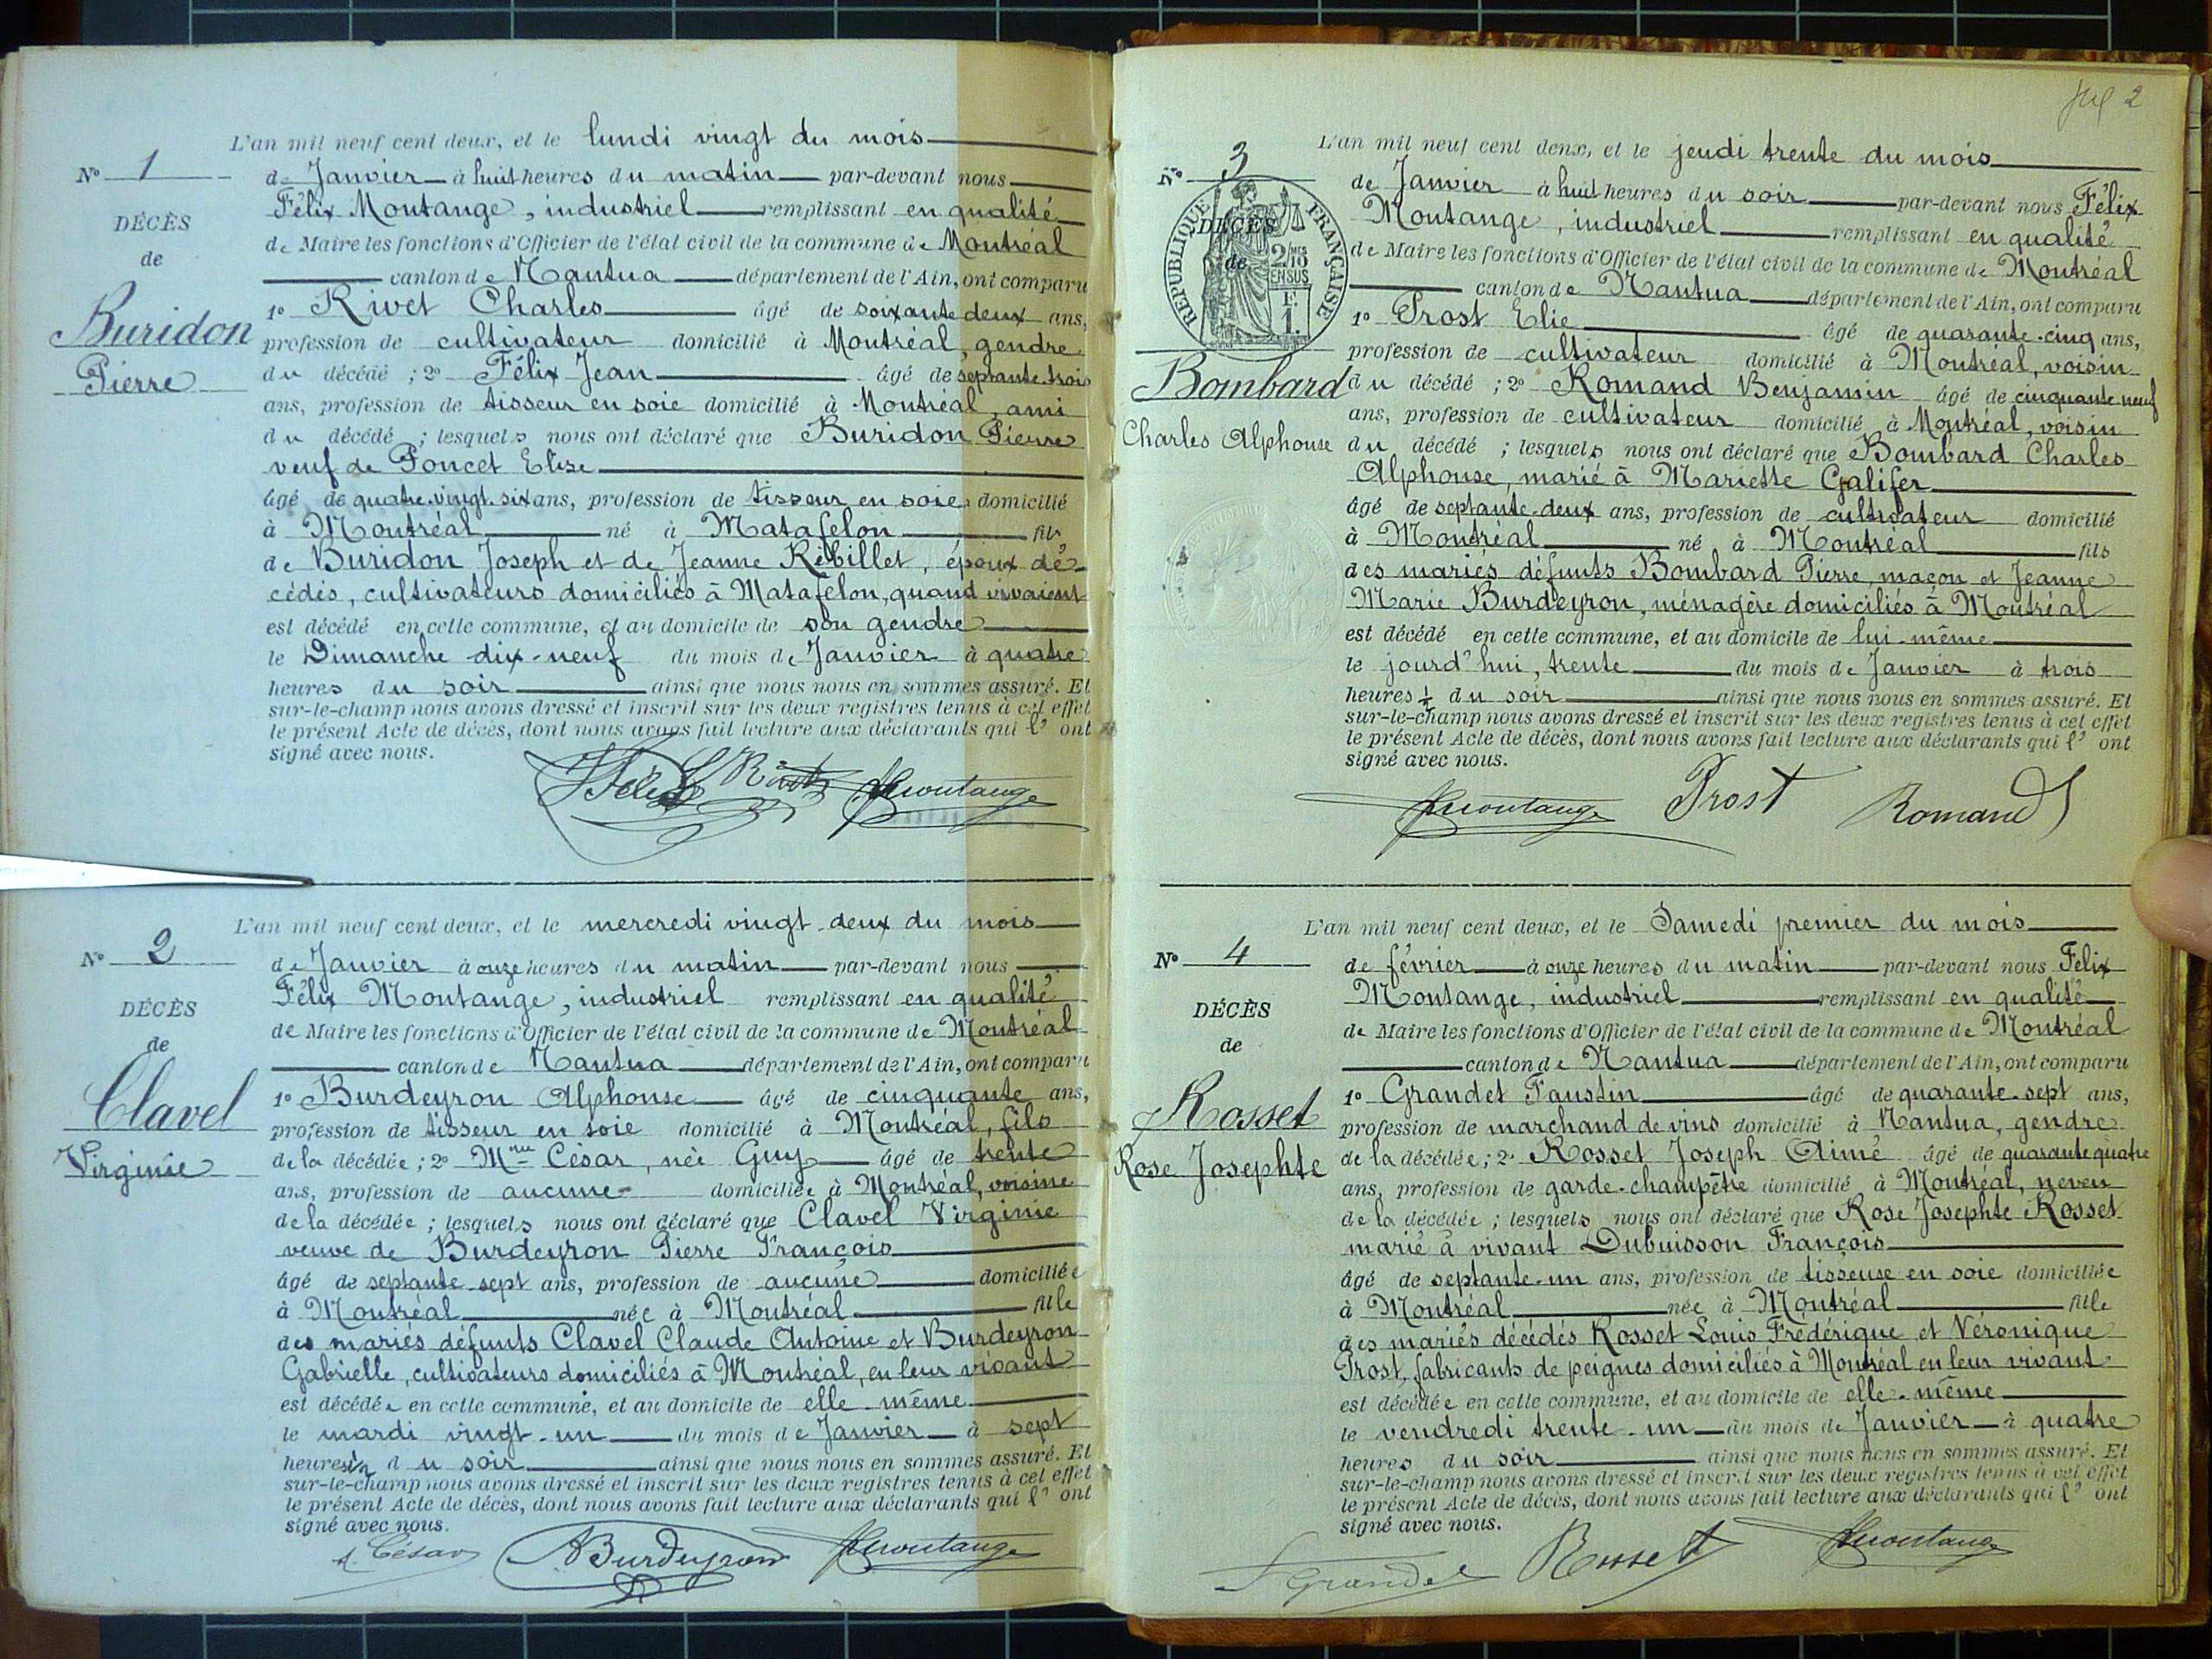 L'an mil neuf cent deux, et le lundi vingt du mois
N° 1
de Janvier à huit heures du matin par-devant nous
Félix Montange, industriel remplissant en qualité
DÉCÈS
de Maire les fonctions d'Officier de l'état civil de la commune de Montréal
de
canton de Nantua département de l'Ain, ont comparu
1° Rivet Charles âgé de soixante deux ans,
Buridon
profession de cultivateur domicilié à Montréal, gendre
Pierre
du décédé ; 2° Félix Jean âgé de septante-trois
ans, profession de tisseur en soie domicilié à Montréal, ami
du décédé ; lesquels nous ont déclaré que Buridon Pierre
veuf de Poncet Elise
âgé de quatre-vingt-six ans, profession de tisseur en soie domicilié
à Montréal né à Matafelon fils
de Buridon Joseph et de Jeanne Ribillet, époux dé-
cédés, cultivateurs domiciliés à Matafelon, quand vivaient
est décédé en cette commune, et au domicile de son gendre
le Dimanche dix-neuf du mois de Janvier à quatre
heures du soir ainsi que nous nous en sommes assuré. Et
sur-le-champ nous avons dressé et inscrit sur les deux registres tenus à cet effet
le présent Acte de décès, dont nous avons fait lecture aux déclarants qui l' ont
signé avec nous.
Montange
L'an mil neuf cent deux, et le mercredi vingt-deux du mois
N° 2
de Janvier à onze heures du matin par-devant nous
Félix Montange, industriel remplissant en qualité
DÉCÈS
de Maire les fonctions d'Officier de l'état civil de la commune de Montréal
de
canton de Nantua département de l'Ain, ont comparu
1° Burdeyron Alphonse âgé de cinquante ans,
Clavel
profession de tisseur en soie domicilié à Montréal, fils
Virginie
de la décédée ; 2° Mme César, née Guy âgé de trente
ans, profession de aucune domiciliée à Montréal, voisine
de la décédée ; lesquels nous ont déclaré que Clavel Virginie
veuve de Burdeyron Pierre François
âgé de septante-sept ans, profession de aucune domiciliée
à Montréal née à Montréal fille
des mariés défunts Clavel Claude Antoine et Burdeyron
Gabrielle, cultivateurs domiciliés à Montréal, en leur vivant
est décédée en cette commune, et au domicile de elle-même
le mardi vingt-un du mois de Janvier à sept
heures ½ du soir ainsi que nous nous en sommes assuré. Et
sur-le-champ nous avons dressé et inscrit sur les deux registres tenus à cet effet
le présent Acte de décès, dont nous avons fait lecture aux déclarants qui l' ont
signé avec nous.
A. César ABurdeyron Montange
2
L'an mil neuf cent deux, et le jeudi trente du mois
N° 3
de Janvier à huit heures du soir par-devant nous Félix
Montange, industriel remplissant en qualité
DÉCÈS
de Maire les fonctions d'Officier de l'état civil de la commune de Montréal
de
RÉPUBLIQUE FRANÇAISE
2/10 EN SUS
1 F.
canton de Nantua département de l'Ain, ont comparu
1° Prost Elie âgé de quarante-cinq ans,
profession de cultivateur domicilié à Montréal, voisin
Bombard
du décédé ; 2° Romand Benjamin âgé de cinquante neuf
ans, profession de cultivateur domicilié à Montréal, voisin
Charles Alphonse
du décédé ; lesquels nous ont déclaré que Bombard Charles
Alphonse, marié à Mariette Galifer
âgé de septante-deux ans, profession de cultivateur domicilié
à Montréal né à Montréal fils
des mariés défunts Bombard Pierre, maçon et Jeanne
Marie Burdeyron, ménagère domiciliés à Montréal
est décédé en cette commune, et au domicile de lui-même
le jourd'hui, trente du mois de Janvier à trois
heures ½ du soir ainsi que nous nous en sommes assuré. Et
sur-le-champ nous avons dressé et inscrit sur les deux registres tenus à cet effet
le présent Acte de décès, dont nous avons fait lecture aux déclarants qui l' ont
signé avec nous.
Montange Prost Romand
L'an mil neuf cent deux, et le Samedi premier du mois
N° 4
de février à onze heures du matin par-devant nous Félix
Montange, industriel remplissant en qualité
DÉCÈS
de Maire les fonctions d'Officier de l'état civil de la commune de Montréal
de
canton de Nantua département de l'Ain, ont comparu
1° Grandet Faustin âgé de quarante-sept ans,
Rosset
profession de marchand de vins domicilié à Nantua, gendre
Rose Josephte
de la décédée ; 2° Rosset Joseph Aimé âgé de quarante quatre
ans, profession de garde-champêtre domicilié à Montréal, neveu
de la décédée ; lesquels nous ont déclaré que Rose Josephte Rosset
marié à vivant Dubuisson François
âgé de septante-un ans, profession de tisseuse en soie domiciliée
à Montréal née à Montréal fille
des mariés décédés Rosset Louis Frédérique et Véronique
Prost, fabricants de peignes domiciliés à Montréal en leur vivant
est décédée en cette commune, et au domicile de elle-même
le vendredi trente-un du mois de Janvier à quatre
heures du soir ainsi que nous nous en sommes assuré. Et
sur-le-champ nous avons dressé et inscrit sur les deux registres tenus à cet effet
le présent Acte de décès, dont nous avons fait lecture aux déclarants qui l' ont
signé avec nous.
Grandet Rosset Montange